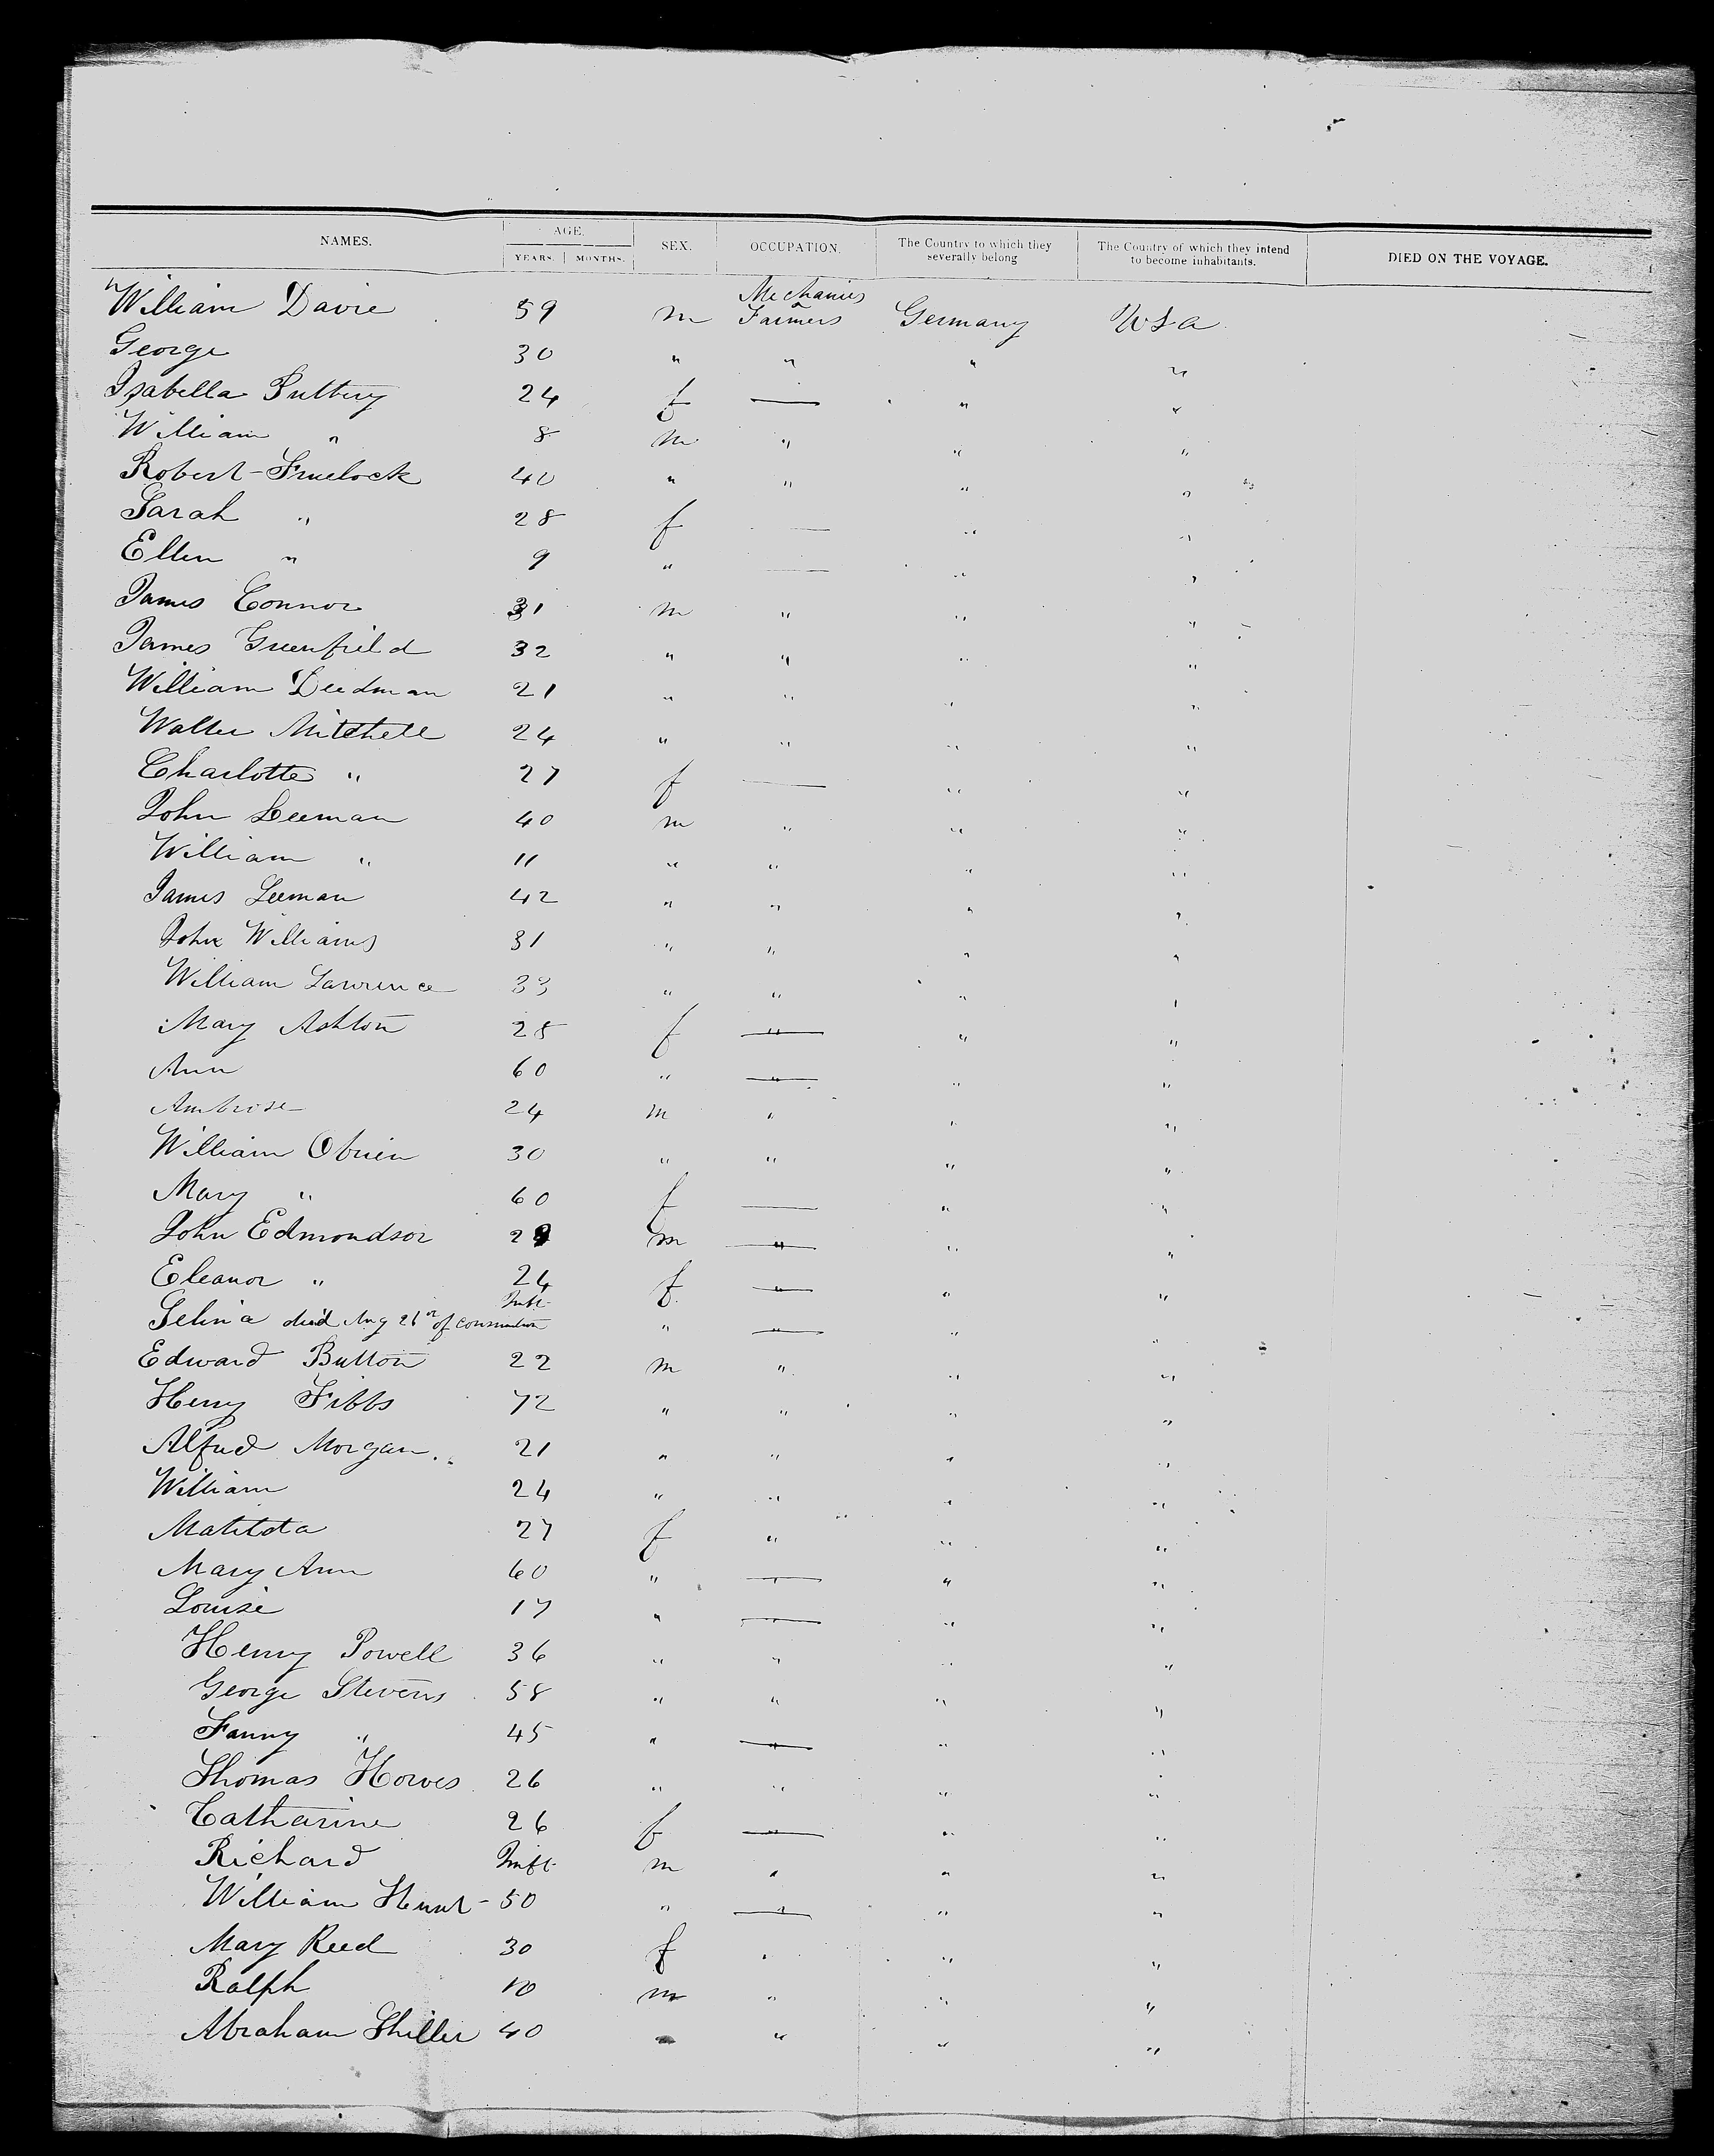 NAMES. AGE. SEX. OCCUPATION. The Country to which they severally belong The Country of which they intend to become inhabitants. DIED ON THE VOYAGE.
YEARS. MONTHS.
William Davie 59 m Mechanics Farmers Germany USA
George 30 " " " "
Isabella 24 f — " "
William " 8 m " " "
Robert 40 " " " "
Sarah " 28 f — " "
Ellen " 9 " — " "
James Connor 31 m " " "
James Greenfield 32 " " " "
William Deedman 21 " " " "
Walter Mitchell 24 " " " "
Charlotte " 27 f — " "
John Leeman 40 m " " "
William " 11 " " " "
James Leeman 42 " " " "
John Williams 31 " " " "
William Lawrence 33 " " " "
Mary Ashton 25 f " " "
Ann 60 " " " "
Ambrose 24 m " " "
William Obrien 30 " " " "
Mary " 60 f — " "
John Edmondson m " " "
Eleanor " 24 f " " "
Selina died Aug 26 of Inft " " " "
Edward Button 22 m " " "
Henry Fibbs 72 " " " "
Alfred Morgan 21 " " " "
William 24 " " " "
Matilda 27 f " " "
Mary Ann 60 " " " "
Louise 17 " " " "
Henry Powell 36 " " " "
George Stevens 58 " " " "
Fanny " 45 " " " "
Thomas Howes 26 " " " "
Catharine 26 f " " "
Richard Inft m " " "
William Hunt 50 " " " "
Mary Reed 30 f " " "
Ralph 10 m " " "
Abraham Shiller 40 " " " "